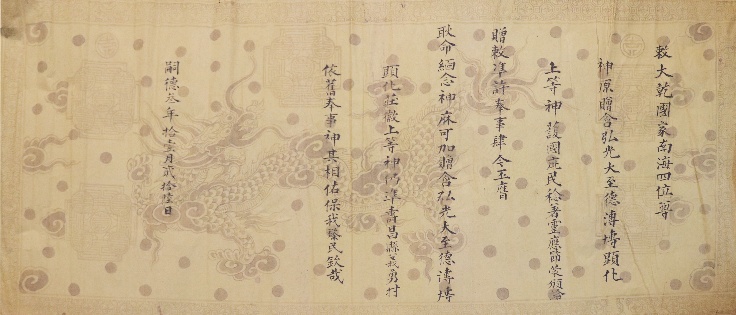 敕大乾國家南海四位尊
神原贈含弘光大至德溥博顯化
上等神護國庇民稔著靈應節蒙頒給
贈敕準許奉事肆今丕膺
耿命緬念神庥可加贈含弘光大至德溥博
顯化莊徽上等神仍準壽昌縣義勇村
依舊奉事神其相佑保我黎民欽哉
嗣德叁年拾壹月貳拾壹日